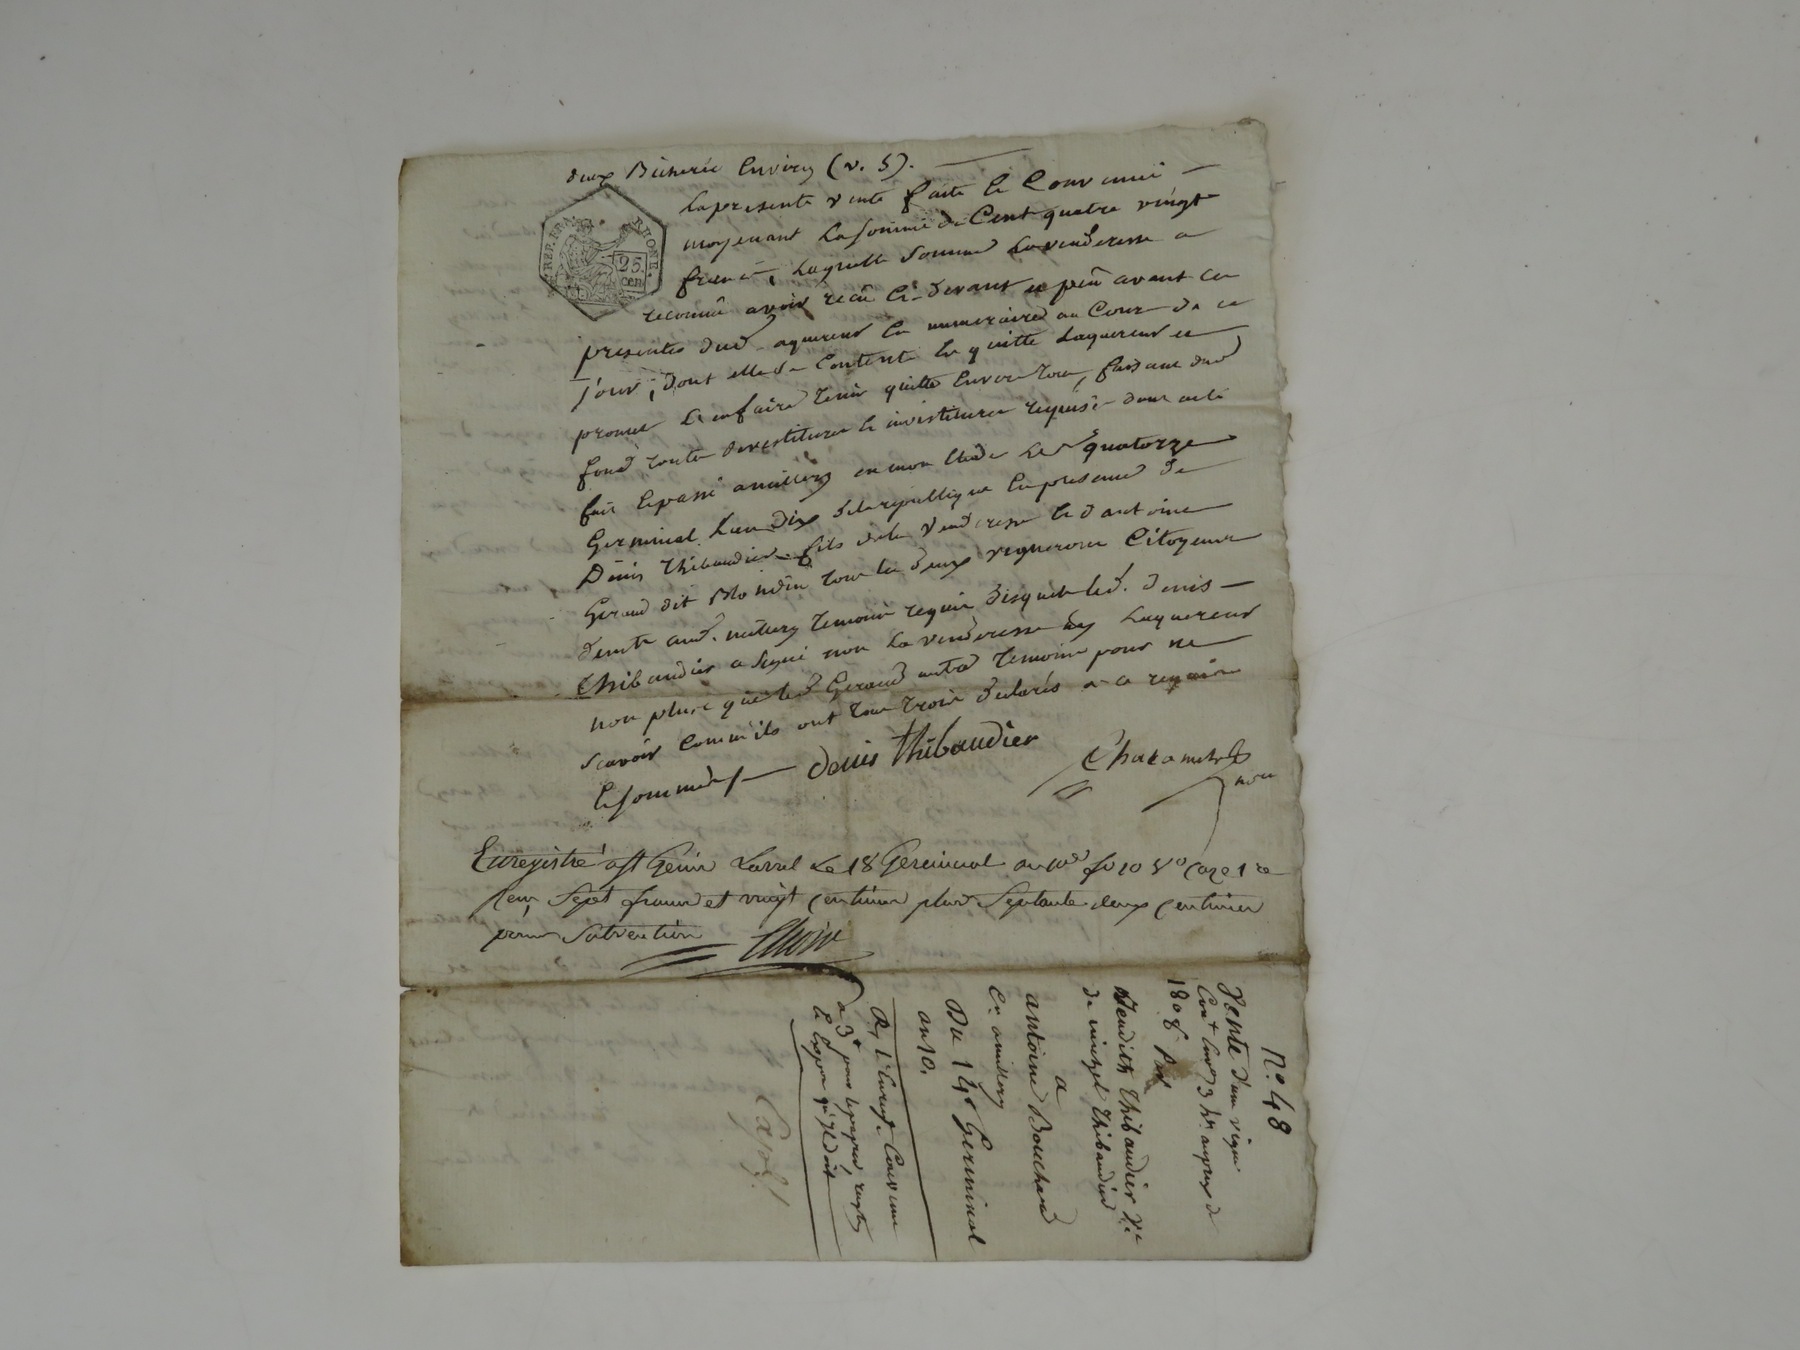 deux Bicherée Environ (v. s).
La presente vente faite et Convenue
moyenant La somme de Cent quatre vingt
francs, Laquelle Somme La venderesse a
reconnu avoir recu Ci-devant et peu avant Ces
presentes dud. aquereur En numeraire au Cour de ce
Jour, dont elle se Contente En quitte Laquereur et
promet L'en faire tenir quitte Envers tous, faisant dud
fond toutes devestitures et investitures requises dont acte
fait et passé a millery en mon Etude Le quatorze
Germinal L'an dix de la republique En presence de
Denis Thibaudier fils de la Venderesse et d'antoine
Geraud dit Blondin tous les deux vignerons Citoyens
dem.t aud. millery temoins requis desquels led. denis
Thibaudier a signé non La venderesse ny Laquereur
non plus que led Geraud autre temoin pour ne
scavoir Comm'ils ont tous trois declarés de ce requis
et sommés denis Thibaudier
REP. FRA. RHONE.
25. cen
not.
Enregistré a St Genis Laval Le 18 Germinal an 10 fo 10 Vo Case 1re
Reçu Sept francs et vingt centimes plus Septante deux centimes
pour Subvention
No. 48
Vente d'une vigne
Cont. Env. 3 hes. auprix de
180 f Par
Benditte Thibaudier Ve
de michel Thibaudier
a
antoine Bouchard
de millery
Du 14e Germinal
an 10.